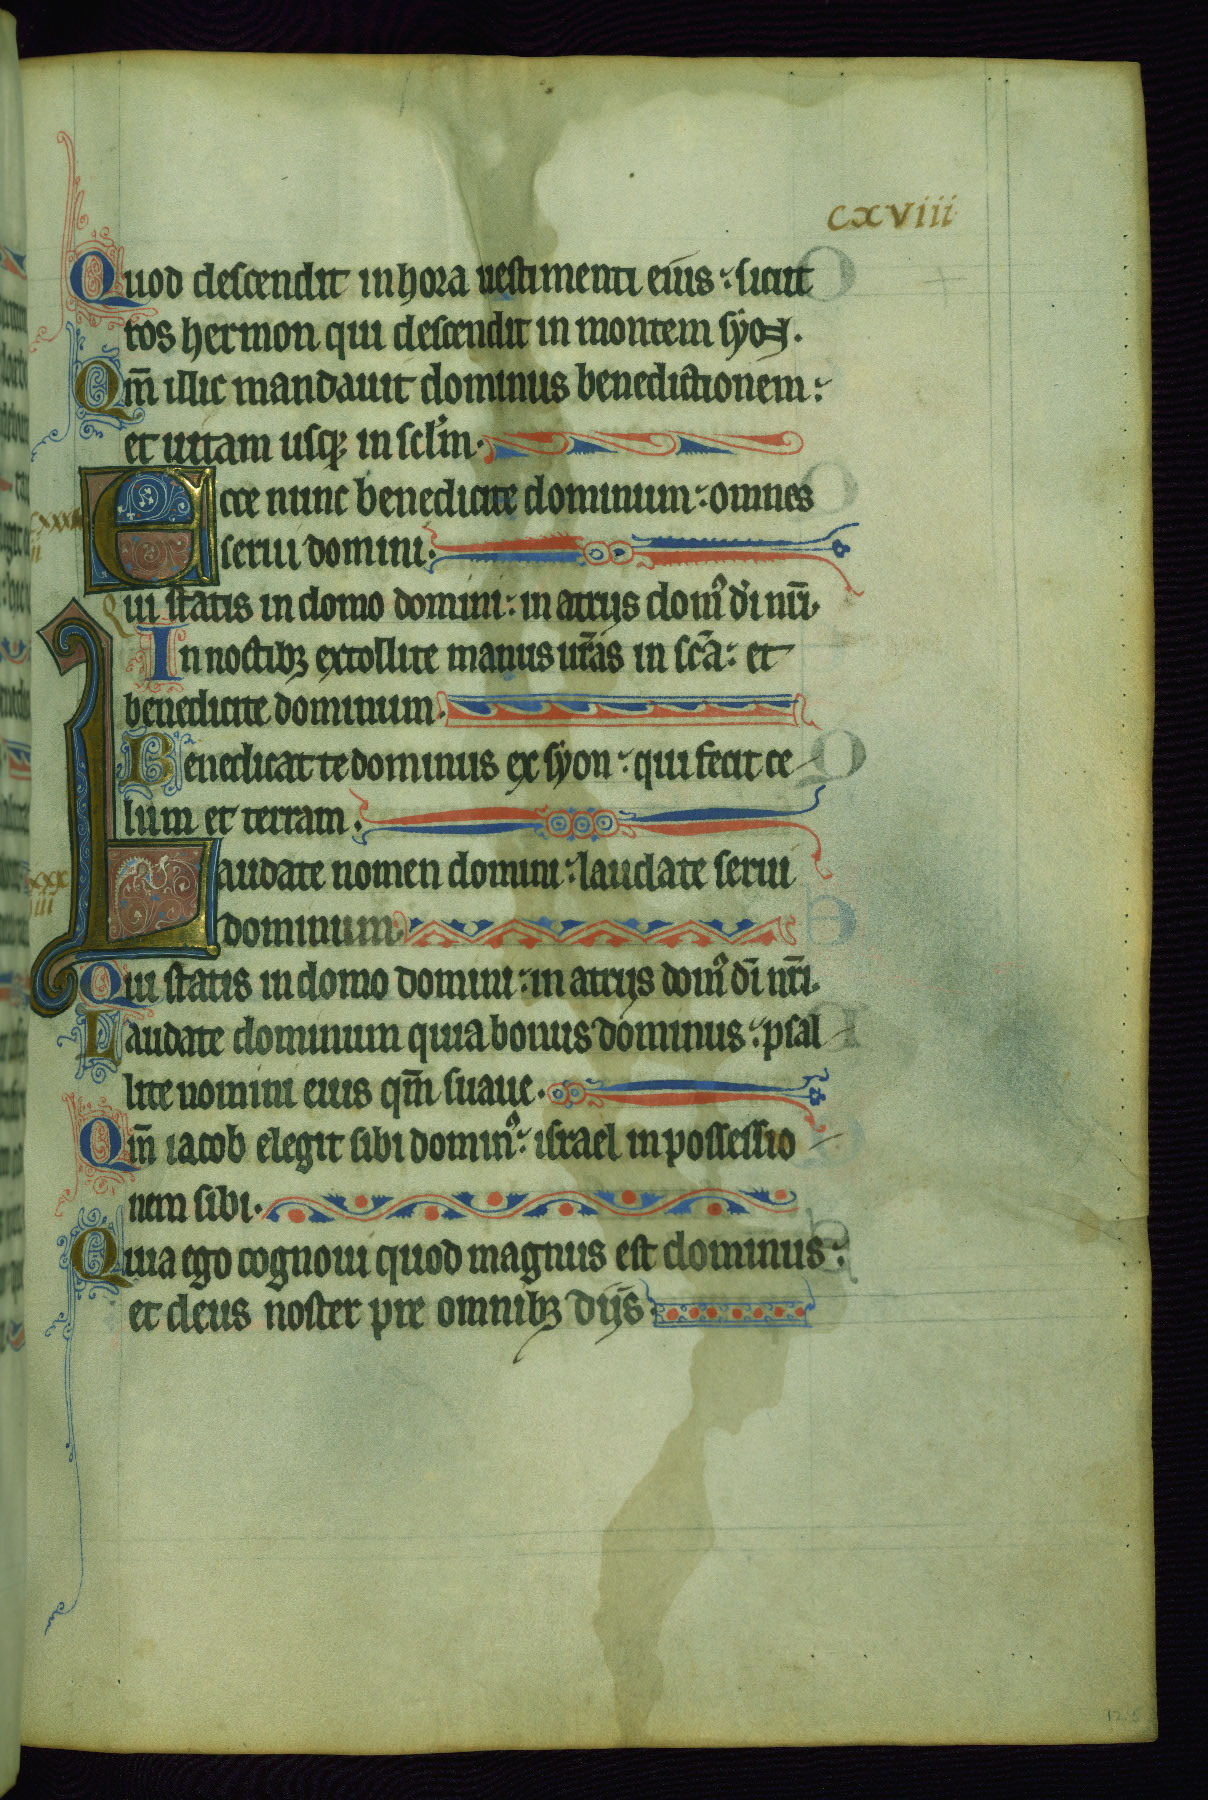 cxviii
Quod descendit in hora uestimenti eius : sicut
ros hermon qui descendit in montem syon.
Qm̄ illic mandauit dominus benedictionem :
et uitam usqꝫ in scl̄m.
Ecce nunc benedicite dominum : omnes
serui domini.
Qui statis in domo domini : in atrijs dom⁹ d'i nr̄i.
In noctibꝫ extollite manus ur̄as in sc̄a : et
benedicite dominum.
Benedicat te dominus ex syon : qui fecit ce
lum et terram.
Laudate nomen domini : laudate serui
dominum.
Qui statis in domo domini : in atrijs dom⁹ dī nr̄i.
Laudate dominum quia bonus dominus : psal
lite nomini eius qm̄ suaue.
Qm̄ iacob elegit sibi domin⁹ : israel in possessio
nem sibi.
Quia ego cognoui quod magnus est dominus :
et deus noster pre omnibꝫ dijs.
125